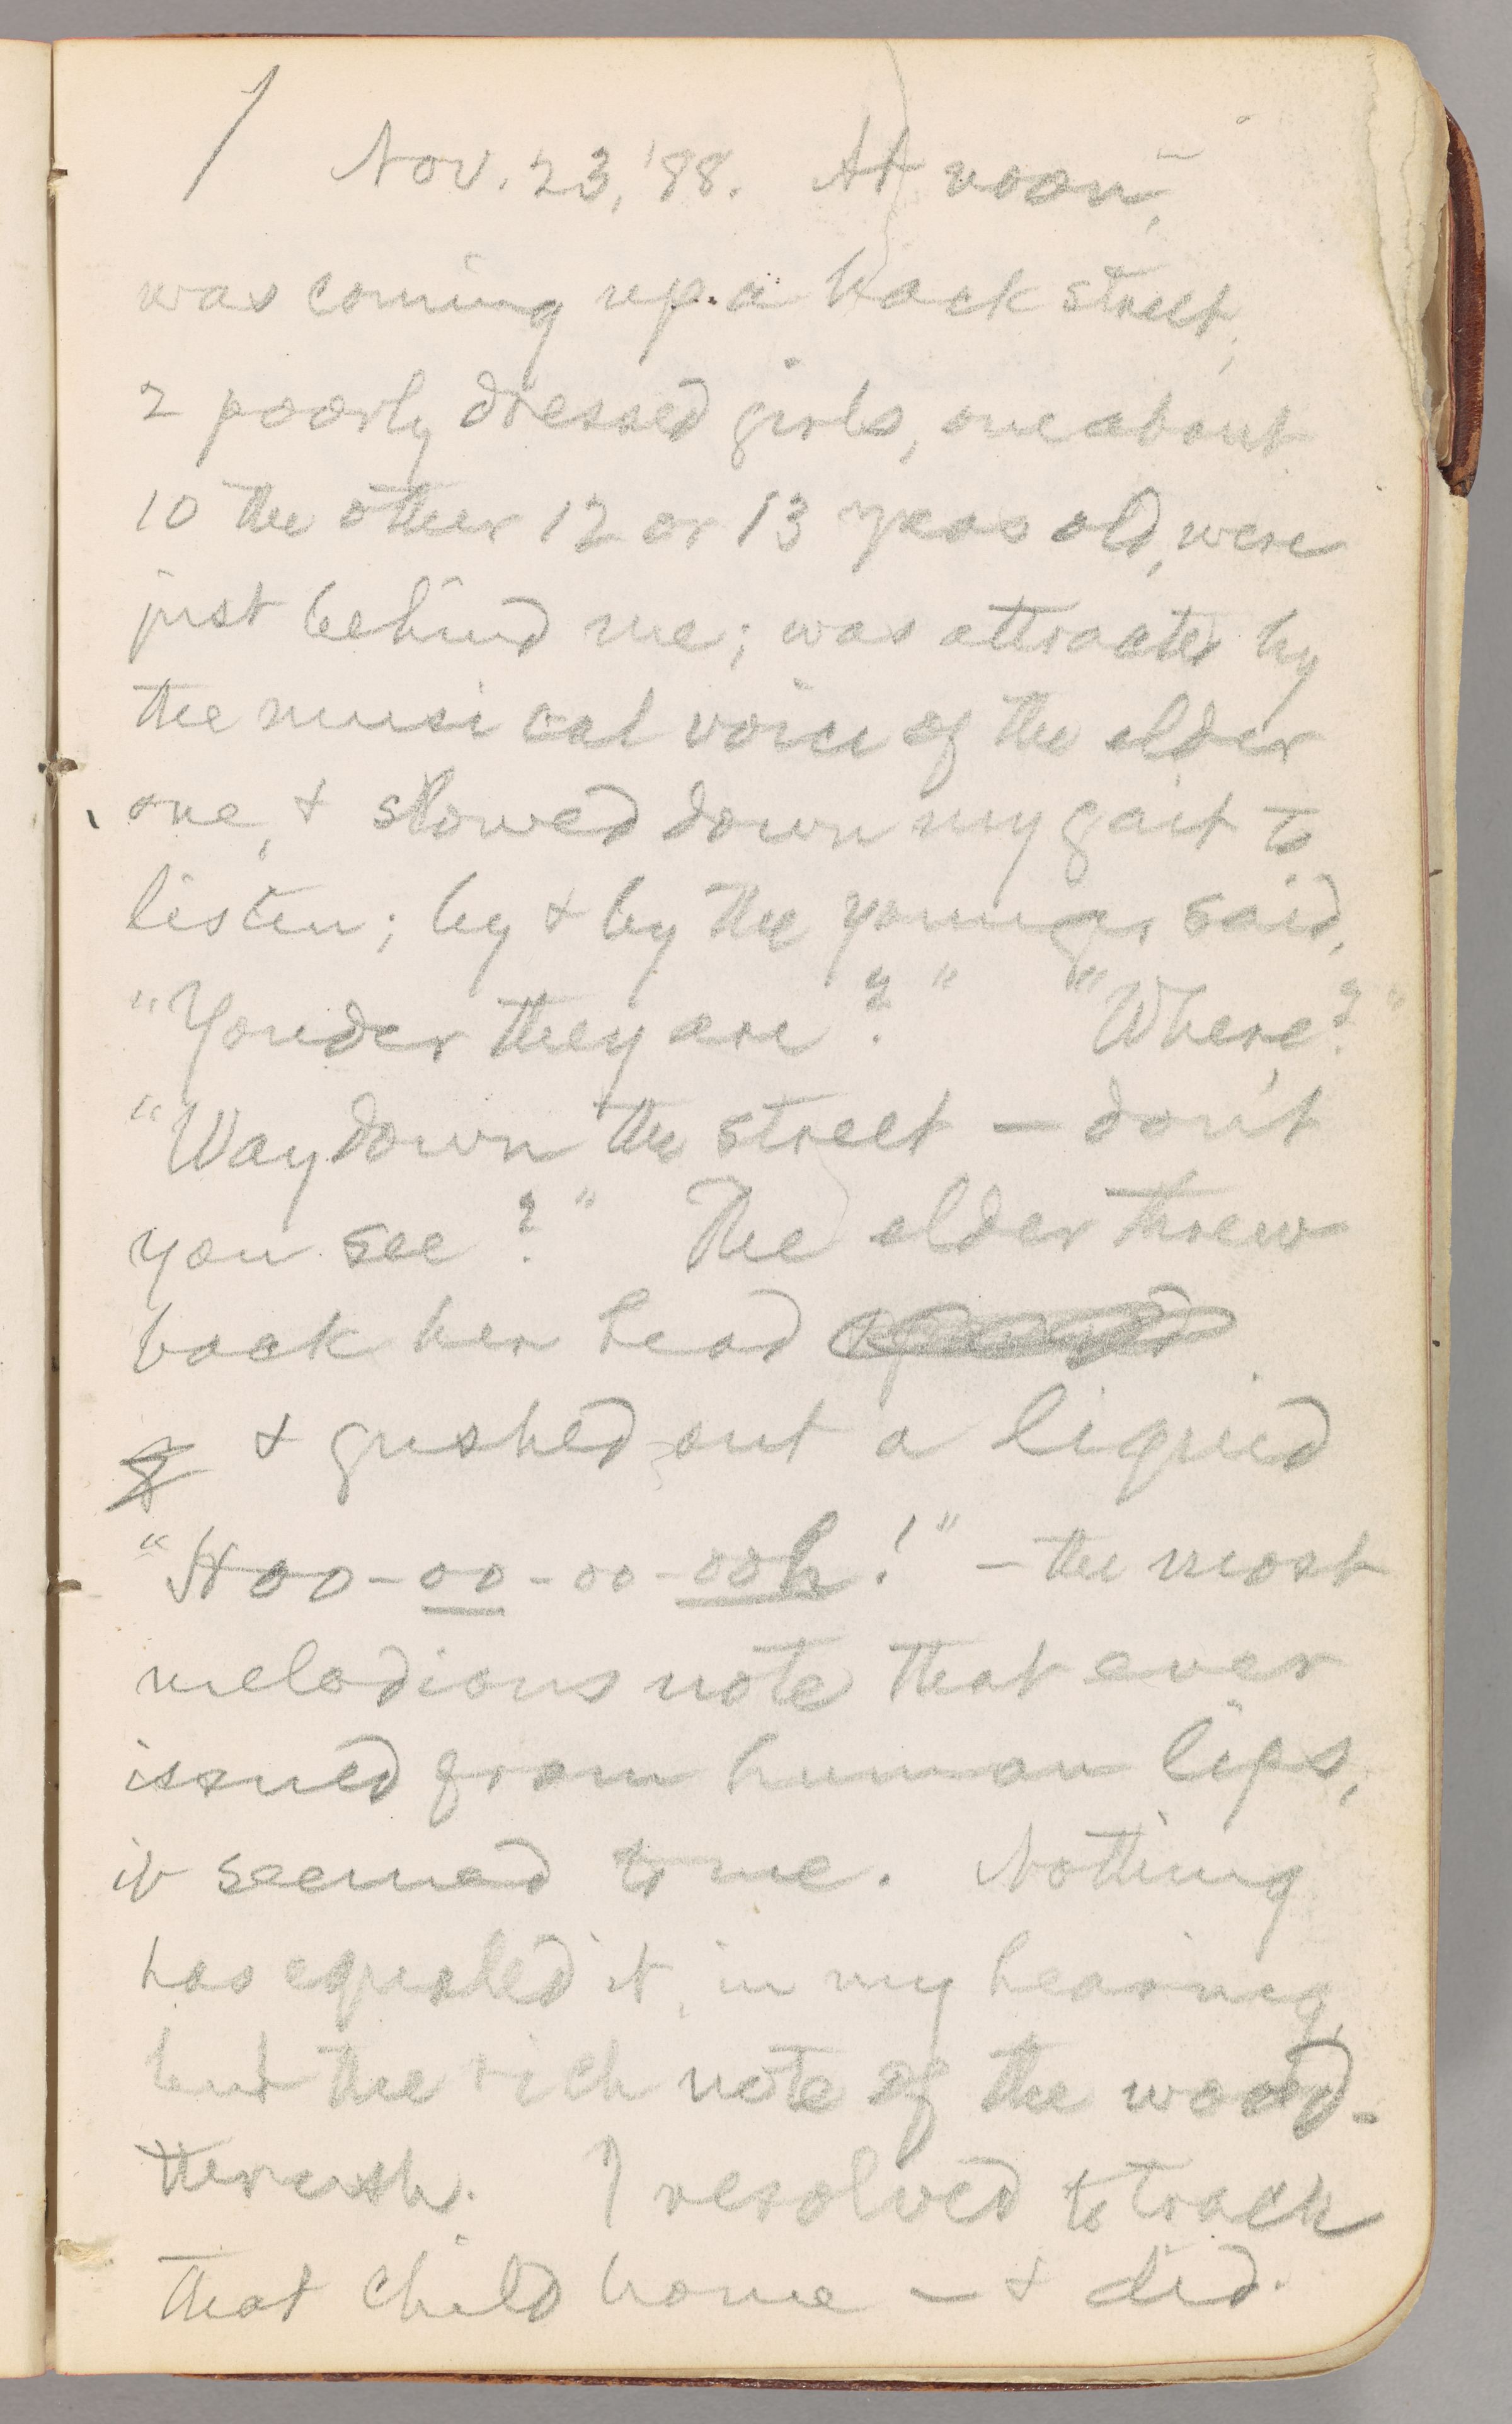 Nov. 23, '88. At noon,
was coming up a back street;
2 poorly dressed girls, one about
10 the other 12 or 13 years old, were
just behind me; was attracted by
the musical voice of the elder
one, & slowed down my gait to
listen; by & by the younger said,
"Yonder they are?" "Where?"
"Way down the street — don't
you see?" The elder threw
back her head
& gushed out a liquid
"Hoo-oo-oo-ooh!" — the most
melodious note that ever
issued from human lips,
it seemed to me. Nothing
has equaled it, in my hearing,
but the rich note of the wood-
thrush. I resolved to track
that child home — & did.